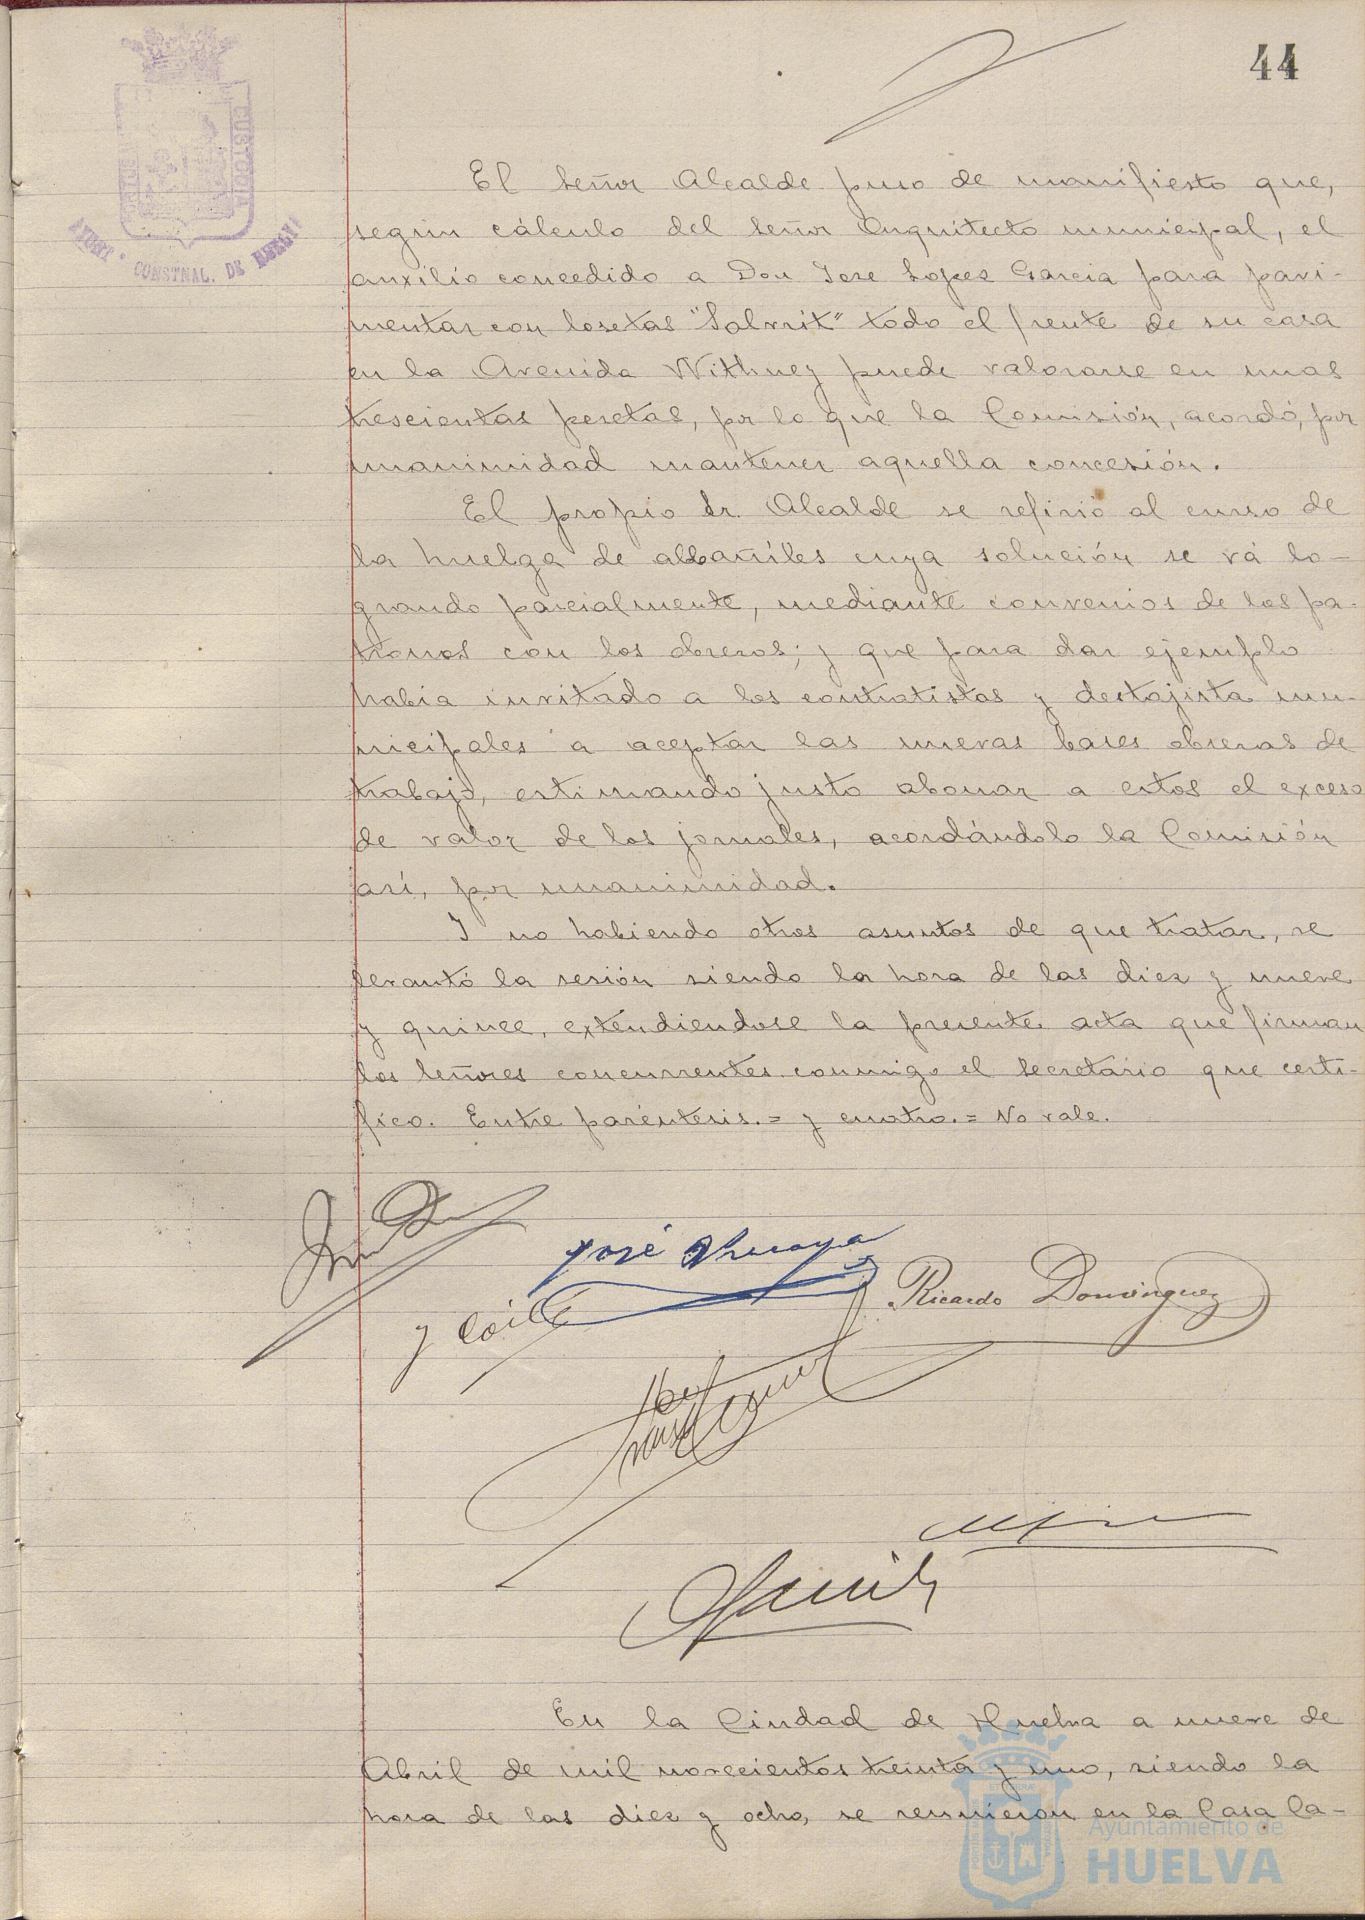 44
CUSTODIA
AYUNT. CONSTNAL. DE HUELVA
El Señor Alcalde puso de manifiesto que,
según cálculo del Señor Arquitecto municipal, el
auxilio concedido a Don Jose Lopez Garcia para pavi-
mentar con losetas "Salvrit" todo el frente de su casa
en la Avenida Withney puede valorarse en unas
trescientas pesetas, por lo que la Comisión, acordó, por
unanimidad mantener aquella concesión.
El propio Sr. Alcalde se refirió al curso de
la huelga de albañiles cuya solución se vá lo-
grando parcialmente, mediante convenios de los pa-
tronos con los obreros; y que para dar ejemplo
habia invitado a los contratistas y destajista mu-
nicipales a aceptar las nuevas bases obreras de
trabajo, estimando justo abonar a estos el exceso
de valor de los jornales, acordándolo la Comisión
así, por unanimidad.
Y no habiendo otros asuntos de que tratar, se
levantó la sesión siendo la hora de las diez y nueve
y quince, extendiendose la presente acta que firman
los Señores concurrentes conmigo el Secretario que certi-
fico. Entre paréntesis.= y cuatro.= No vale.
José
Ricardo Dominguez
y Coil
En la Ciudad de Huelva a nueve de
Abril de mil novecientos treinta y uno, siendo la
hora de las diez y ocho, se reunieron en la Casa Ca-
Ayuntamiento de
HUELVA